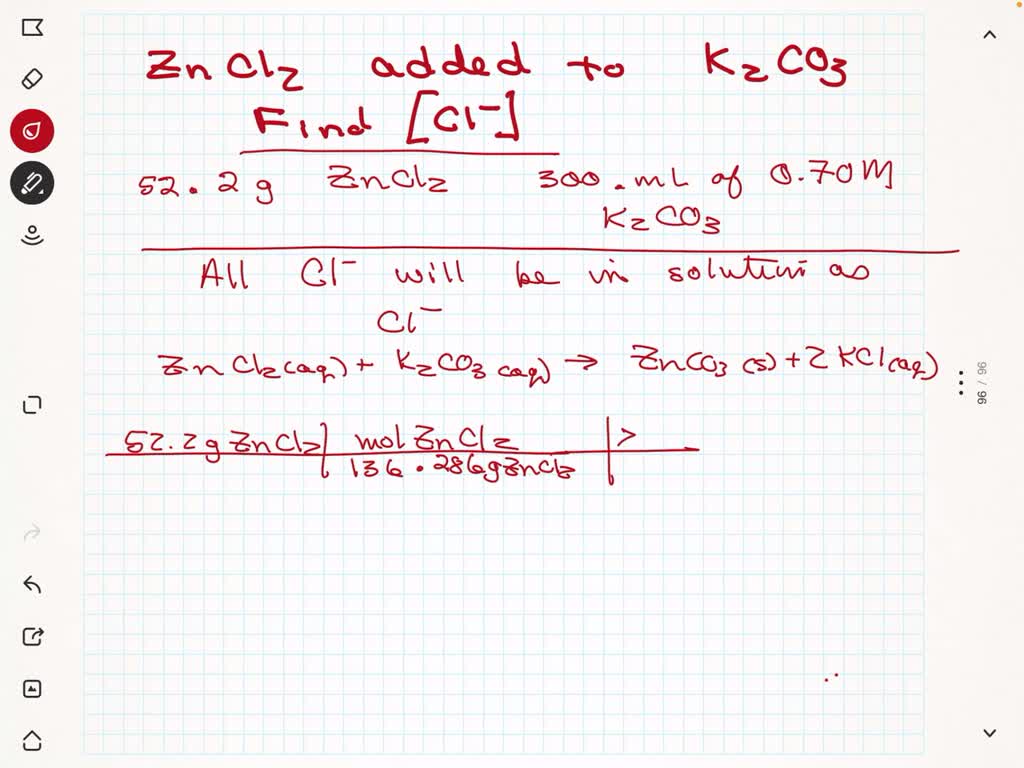 ZnCl2 added to K2CO3
Find [Cl-]
52.2g ZnCl2 300.mL of 0.70M
K2CO3
All Cl- will be in solution as
Cl-
ZnCl2(aq) + K2CO3(aq) → ZnCO3(s) + 2KCl(aq)
52.2g ZnCl2 | mol ZnCl2 | >
136.286g ZnCl2
96 / 96